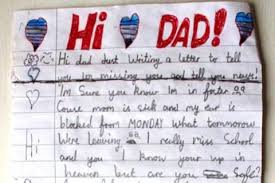 Hi DAD!
Hi dad Just Writing a letter to tell
you im missing you and tell you news!
I'm Sure you know Im in foster
Cause mom is sick and my ear is
blocked from MONDAY what tomorrow
Hi Were leaving I really miss School
and you I know your up in
heaven but are you Safe?